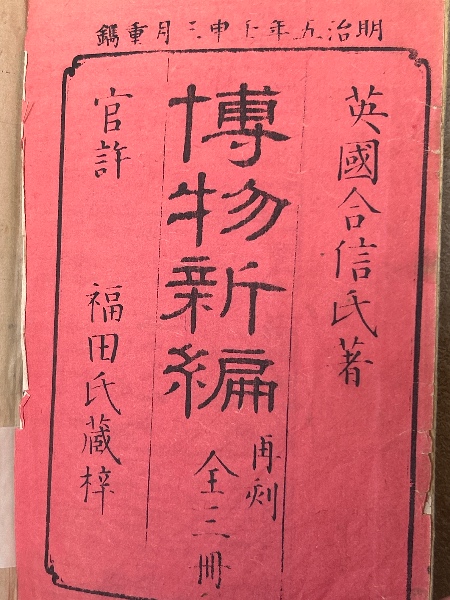 明治五年壬申三月重鐫
英國合信氏著
博物新編
再刻
全三冊
官許
福田氏蔵梓